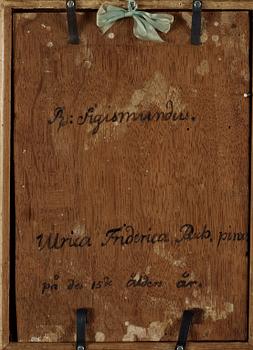 Ap: Sigismundus.
Ulrica Friderica Pasch. pinx
på des 15de ålders år.